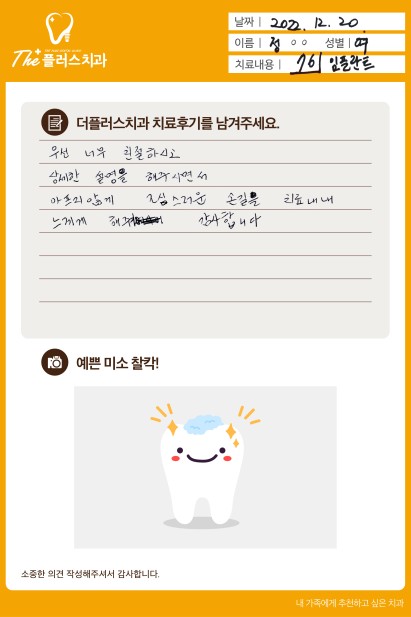 The 플러스치과
날짜 | 2022. 12. 20.
이름 | 정 ○○ 성별 | 여
치료내용 | 거이 임플란트
더플러스치과 치료후기를 남겨주세요.
우선 너무 친절하시고
상세한 설명을 해주시면서
아프지않게 조심스러운 손길을 치료내내
느끼게 해줘 감사합니다
예쁜 미소 찰칵!
소중한 의견 작성해주셔서 감사합니다.
내 가족에게 추천하고 싶은 치과